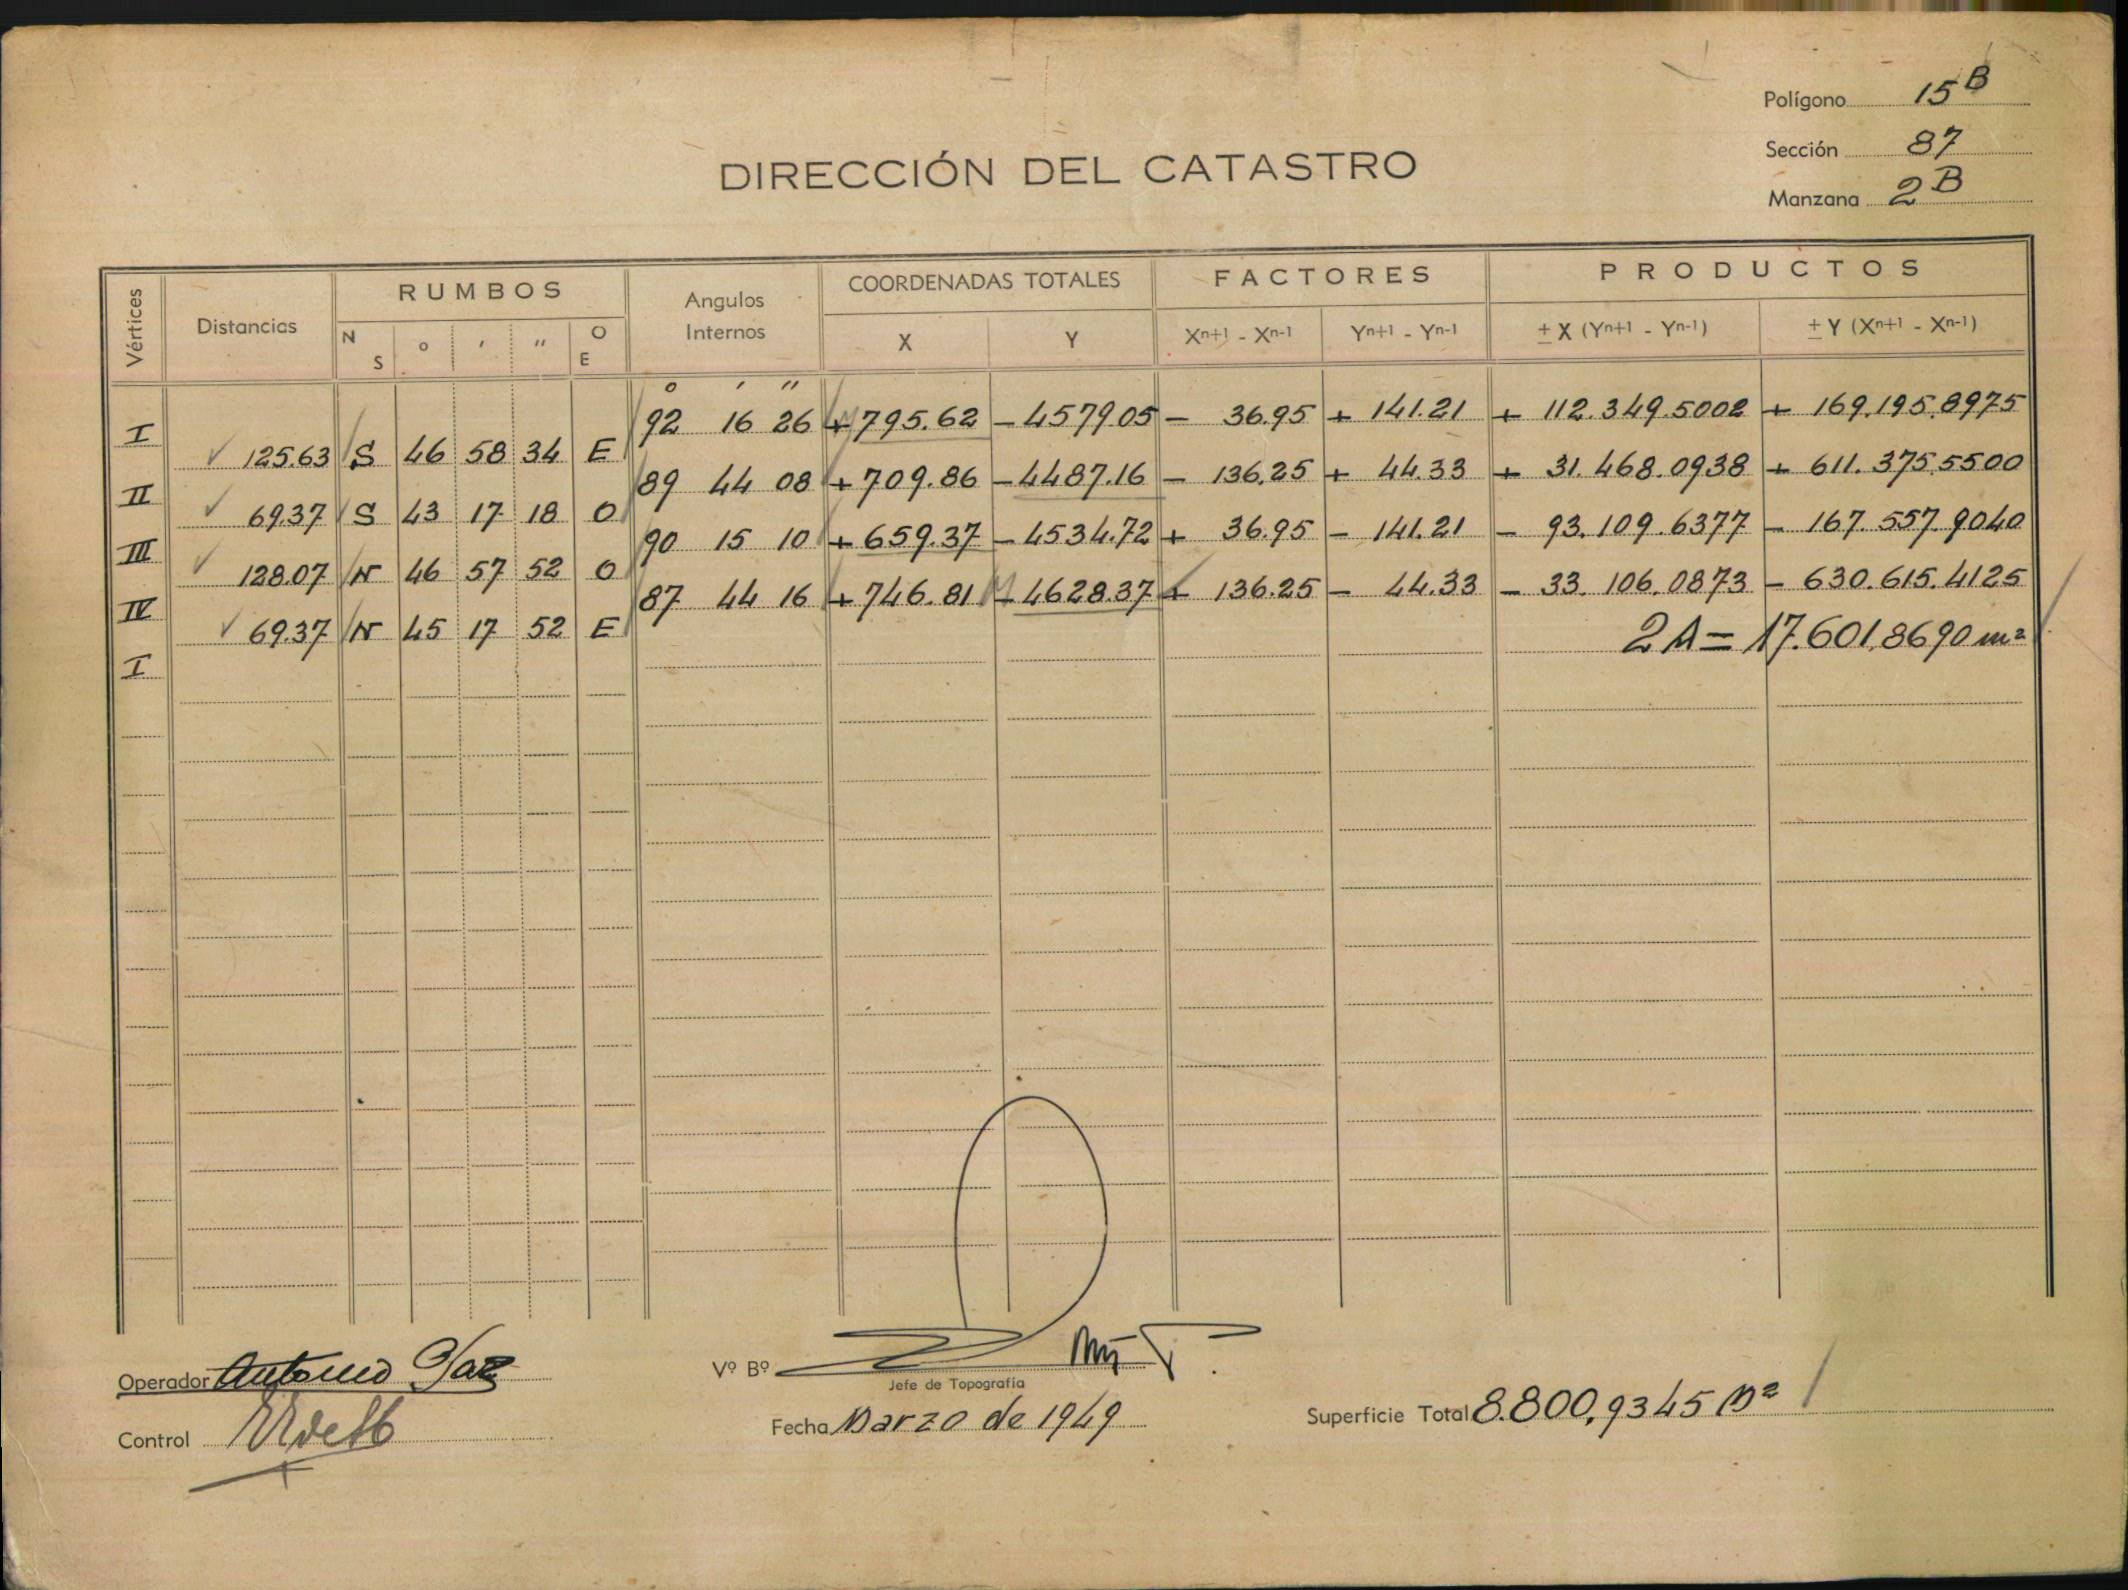 Polígono 15 B
Sección 87
Manzana 2 B
DIRECCIÓN DEL CATASTRO
Vértices Distancias RUMBOS Angulos Internos COORDENADAS TOTALES FACTORES PRODUCTOS
N S o ' " O E X Y Xn+1 - Xn-1 Yn+1 - Yn-1 ± X (Yn+1 - Yn-1) ± Y (Xn+1 - Xn-1)
o ' "
I 92 16 26 + 795.62 - 4579.05 - 36.95 + 141.21 + 112.349.5002 + 169.195,8975
125.63 S 46 58 34 E
II 89 44 08 + 709.86 - 4487.16 - 136.25 + 44.33 + 31.468.0938 + 611.375,5500
69.37 S 43 17 18 O
III 90 15 10 + 659.37 - 4534.72 + 36.95 - 141.21 - 93.109.6377 - 167.557.9040
128.07 N 46 57 52 O
IV 87 44 16 + 746.81 - 4628.37 + 136.25 - 44.33 - 33.106.0873 - 630.615.4125
69.37 N 45 17 52 E
2A = 17.601,8690 m²
I
Operador Antonio
Vº Bº
Jefe de Topografía
Control
Fecha Marzo de 1949
Superficie Total 8.800,9345 m²